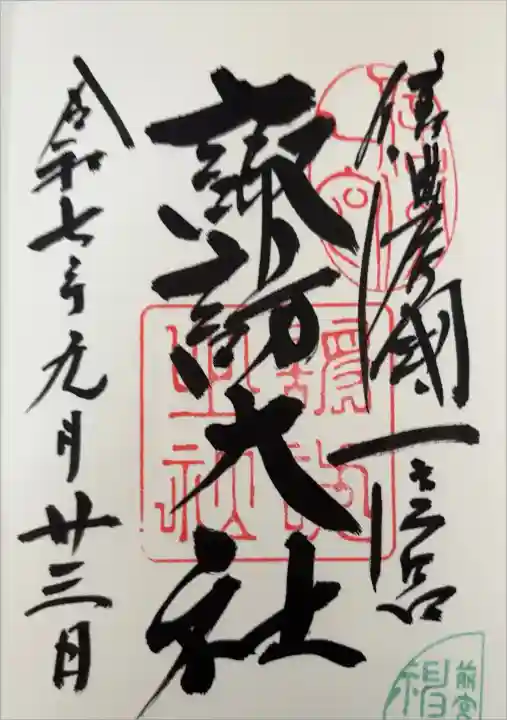 信濃國一之宮
諏訪大社
令和七年元月廿三日
諏訪
大社
前宮